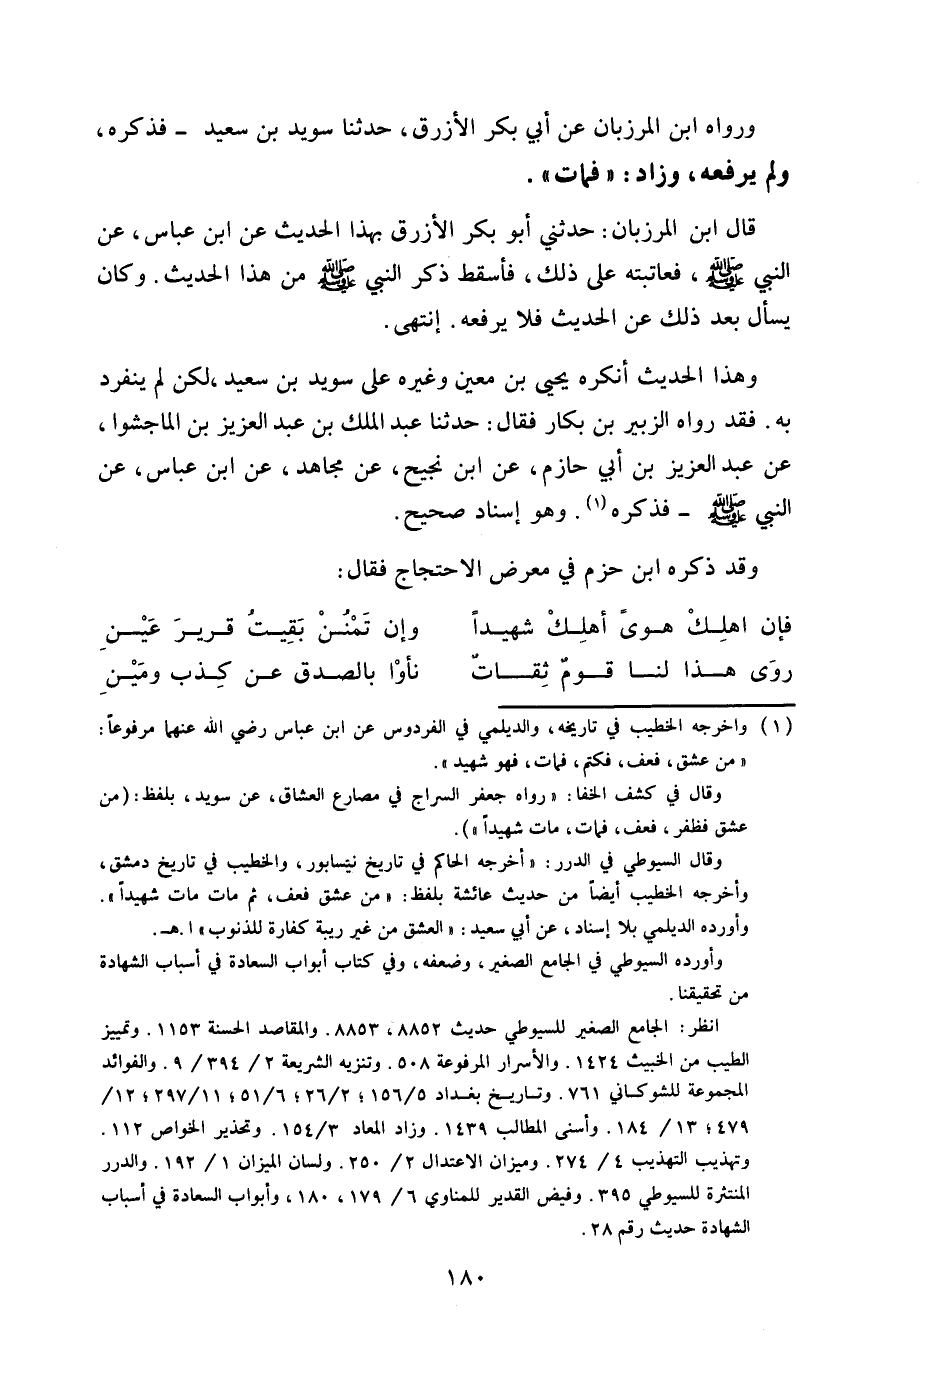 ورواه ابن المرزبان عن أبي بكر الأزرق، حدثنا سويد بن سعيد ـ فذكره،
ولم يرفعه، وزاد: «فمات».
قال ابن المرزبان: حدثني أبو بكر الأزرق بهذا الحديث عن ابن عباس، عن
النبي ﷺ، فعاتبته على ذلك، فأسقط ذكر النبي ﷺ من هذا الحديث. وكان
يسأل بعد ذلك عن الحديث فلا يرفعه. إنتهى.
وهذا الحديث أنكره يحيى بن معين وغيره على سويد بن سعيد ،لكن لم ينفرد
به. فقد رواه الزبير بن بكار فقال: حدثنا عبد الملك بن عبد العزيز بن الماجشوا،
عن عبد العزيز بن أبي حازم، عن ابن نجيح، عن مجاهد، عن ابن عباس، عن
النبي ﷺ ـ فذكره(١). وهو إسناد صحيح.
وقد ذكره ابن حزم في معرض الاحتجاج فقال:
فإن اهلِكْ هوىً أهلِكْ شهيداً وإن تَمْنُنْ بَقِيتُ قريرَ عَيْنِ
روَى هذا لنا قومٌ ثِقاتٌ نأوْا بالصدق عن كِذب ومَيْنِ
(١) واخرجه الخطيب في تاريخه، والديلمي في الفردوس عن ابن عباس رضي الله عنهما مرفوعاً:
«من عشق، فعف، فكتم، فمات، فهو شهيد».
وقال في كشف الخفا: «رواه جعفر السراج في مصارع العشاق، عن سويد، بلفظ: (من
عشق فظفر، فعف، فمات، مات شهيداً»).
وقال السيوطي في الدرر: «أخرجه الحاكم في تاريخ نيسابور، والخطيب في تاريخ دمشق،
وأخرجه الخطيب أيضاً من حديث عائشة بلفظ: «من عشق فعف، ثم مات مات شهيداً».
وأورده الديلمي بلا إسناد، عن أبي سعيد: «العشق من غير ريبة كفارة للذنوب» ا.هـ.
وأورده السيوطي في الجامع الصغير، وضعفه، وفي كتاب أبواب السعادة في أسباب الشهادة
من تحقيقنا.
انظر: الجامع الصغير للسيوطي حديث ٨٨٥٢، ٨٨٥٣. والمقاصد الحسنة ١١٥٣. وتمييز
الطيب من الخبيث ١٤٢٤. والأسرار المرفوعة ٥٠٨. وتنزيه الشريعة ٢/ ٣٩٤/ ٩. والفوائد
المجموعة للشوكاني ٧٦١. وتاريخ بغداد ١٥٦/٥؛ ٢٦/٢؛ ٥١/٦؛ ٢٩٧/١١؛ ١٢/
٤٧٩؛ ١٣/ ١٨٤. وأسنى المطالب ١٤٣٩. وزاد المعاد ١٥٤/٣. وتحذير الخواص ١١٢.
وتهذيب التهذيب ٤/ ٢٧٤. وميزان الاعتدال ٢/ ٢٥٠. ولسان الميزان ١/ ١٩٢. والدرر
المنتثرة للسيوطي ٣٩٥. وفيض القدير للمناوي ٦/ ١٧٩، ١٨٠، وأبواب السعادة في أسباب
الشهادة حديث رقم ٢٨.
١٨٠